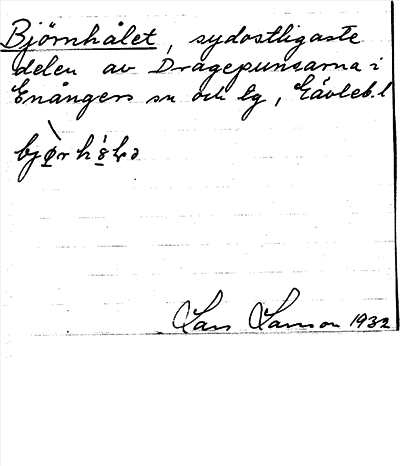 Björnhålet, sydostligaste
delen av Dragepunsarna i
Enångers sn och tg, Gävleb.l
Lars Larsson 1932